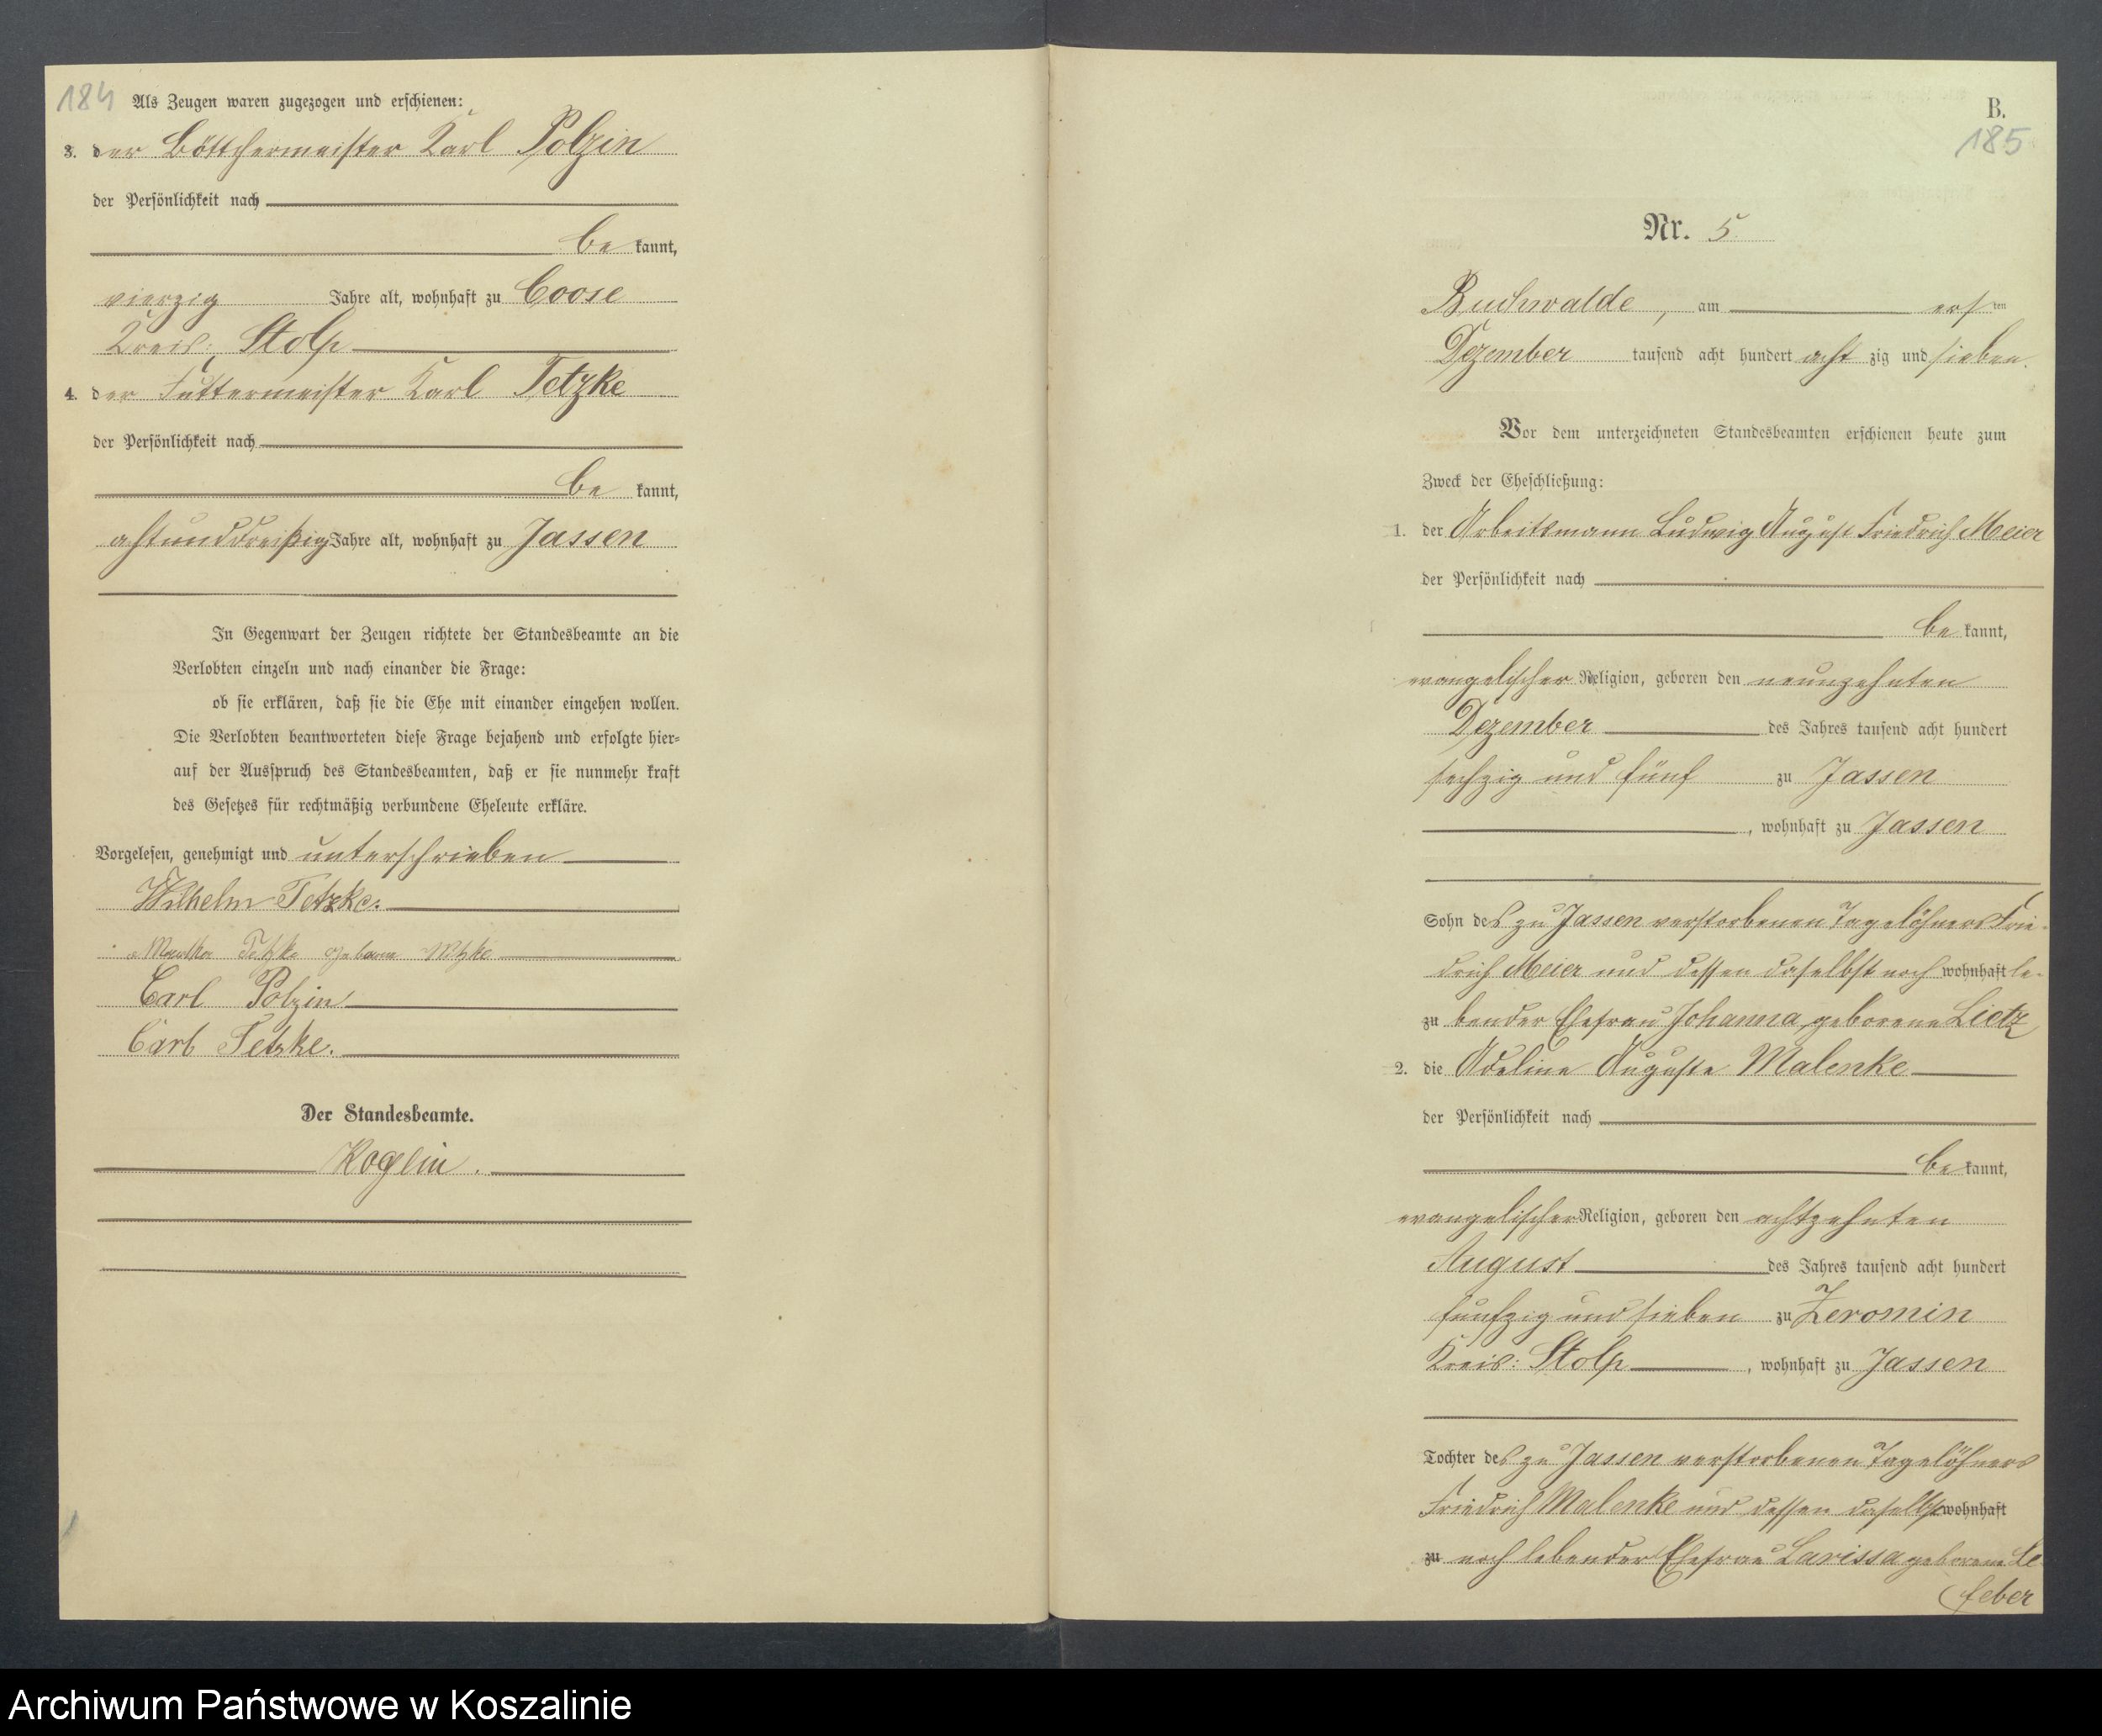 184
Als Zeugen waren zugezogen und erschienen:
3. der Böttchermeister Karl Polzin
der Persönlichkeit nach
be kannt,
vierzig Jahre alt, wohnhaft zu Coose
Kreis: Stolp
4. der Futtermeister Karl Tetzke
der Persönlichkeit nach
be kannt,
achtunddreißig Jahre alt, wohnhaft zu Jassen
In Gegenwart der Zeugen richtete der Standesbeamte an die
Verlobten einzeln und nach einander die Frage:
ob sie erklären, daß sie die Ehe mit einander eingehen wollen.
Die Verlobten beantworteten diese Frage bejahend und erfolgte hier-
auf der Ausspruch des Standesbeamten, daß er sie nunmehr kraft
des Gesetzes für rechtmäßig verbundene Eheleute erkläre.
Vorgelesen, genehmigt und unterschrieben
Wilhelm Tetzke.
Tetzke geborene
Carl Polzin
Carl Tetzke.
Der Standesbeamte.
Koglin.
B.
185
Nr. 5
Buchwalde, am ersten
Dezember tausend acht hundert acht zig und sieben.
Vor dem unterzeichneten Standesbeamten erschienen heute zum
Zweck der Eheschließung:
1. der Arbeitsmann Ludwig August Friedrich Meier
der Persönlichkeit nach
be kannt,
evangelischer Religion, geboren den neunzehnten
Dezember des Jahres tausend acht hundert
sechzig und fünf zu Jassen
, wohnhaft zu Jassen
Sohn des zu Jassen verstorbenen Tagelöhners Frie-
drich Meier und dessen daselbst noch wohnhaft le-
zu bender Ehefrau Johanna, geborene Lietz
2. die Adeline Auguste Malenke
der Persönlichkeit nach
be kannt,
evangelischer Religion, geboren den achtzehnten
August des Jahres tausend acht hundert
fünfzig und sieben zu Zeromin
Kreis: Stolp, wohnhaft zu Jassen
Tochter des zu Jassen verstorbenen Tagelöhners
Friedrich Malenke und dessen daselbst wohnhaft
zu noch lebender Ehefrau Larissa geborene Le
feber
Archiwum Państwowe w Koszalinie